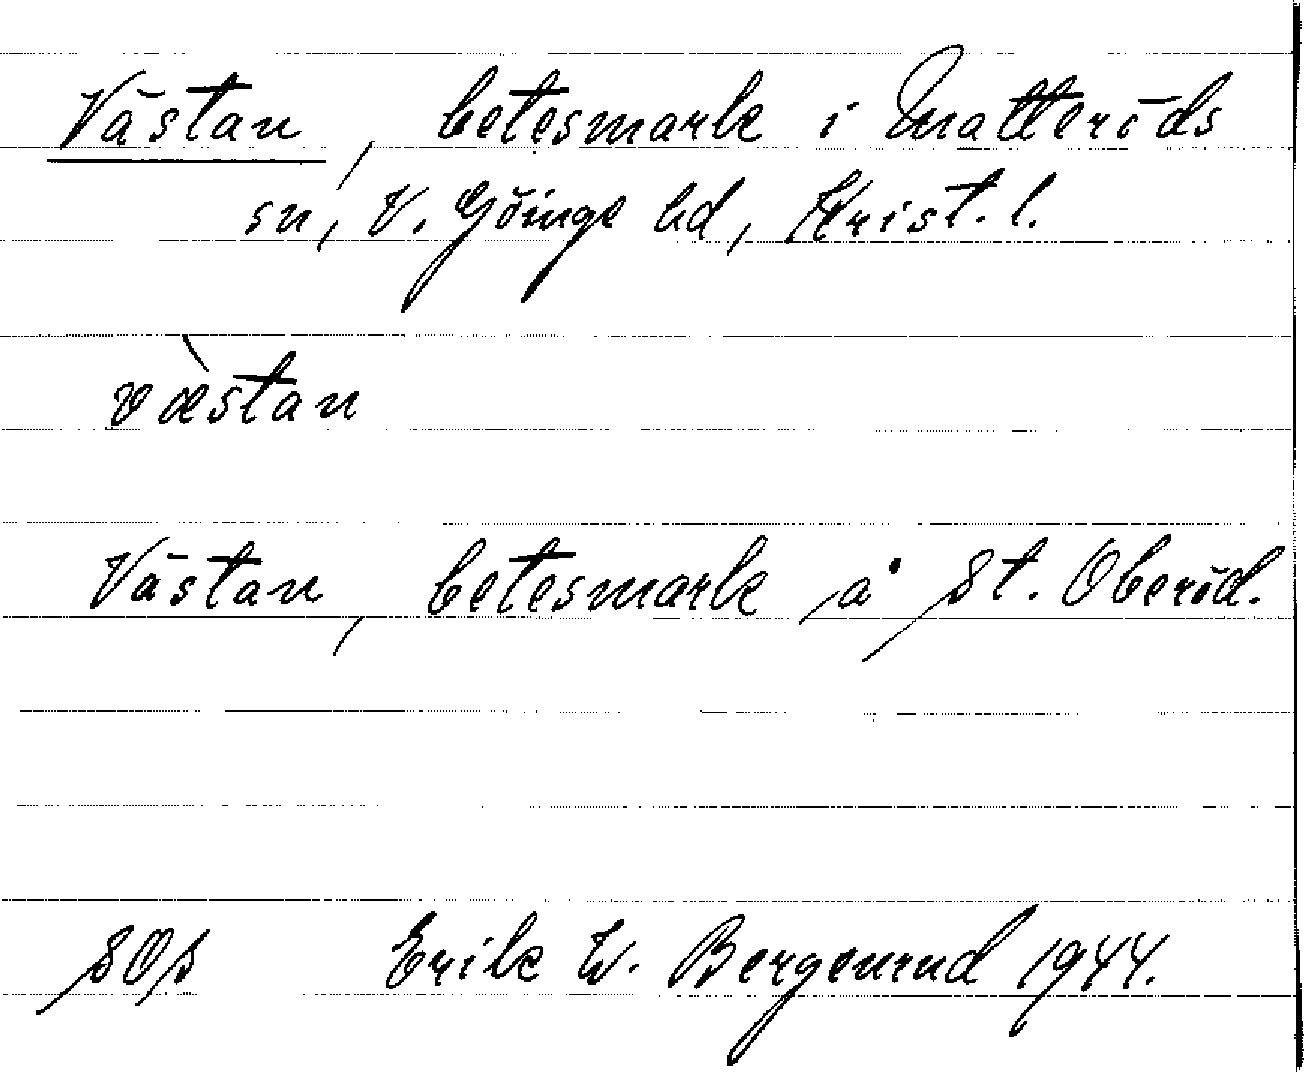 Västan, betesmark i Matteröds
sn, V. Göinge hd, Krist. l.
væ̀stan
Västan, betesmark å St. Oberöd.
SOS Erik W. Bergenrud 1944.